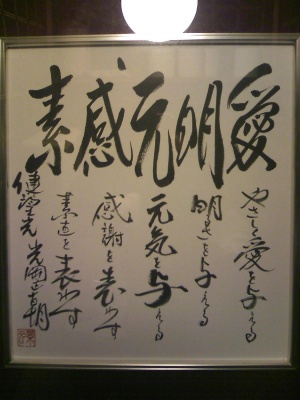 愛明元感素
やさしく愛を与える
明るさを与える
元気を与える
感謝を表わす
素直を表わす